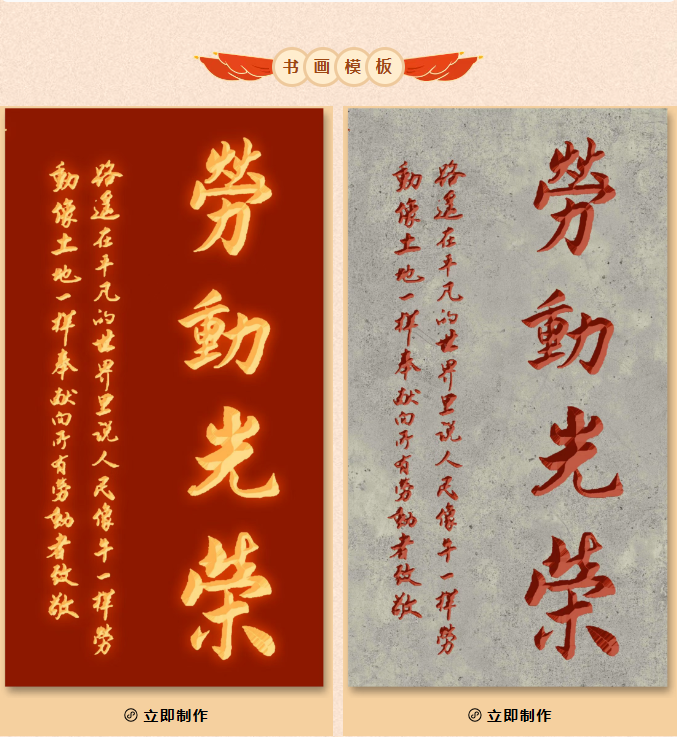 书画模板
勞動光荣
路遥在平凡的世界里说人民像牛一样勞
動像土地一样奉献向所有勞動者致敬
立即制作
勞動光荣
路遥在平凡的世界里说人民像牛一样勞
動像土地一样奉献向所有勞動者致敬
立即制作